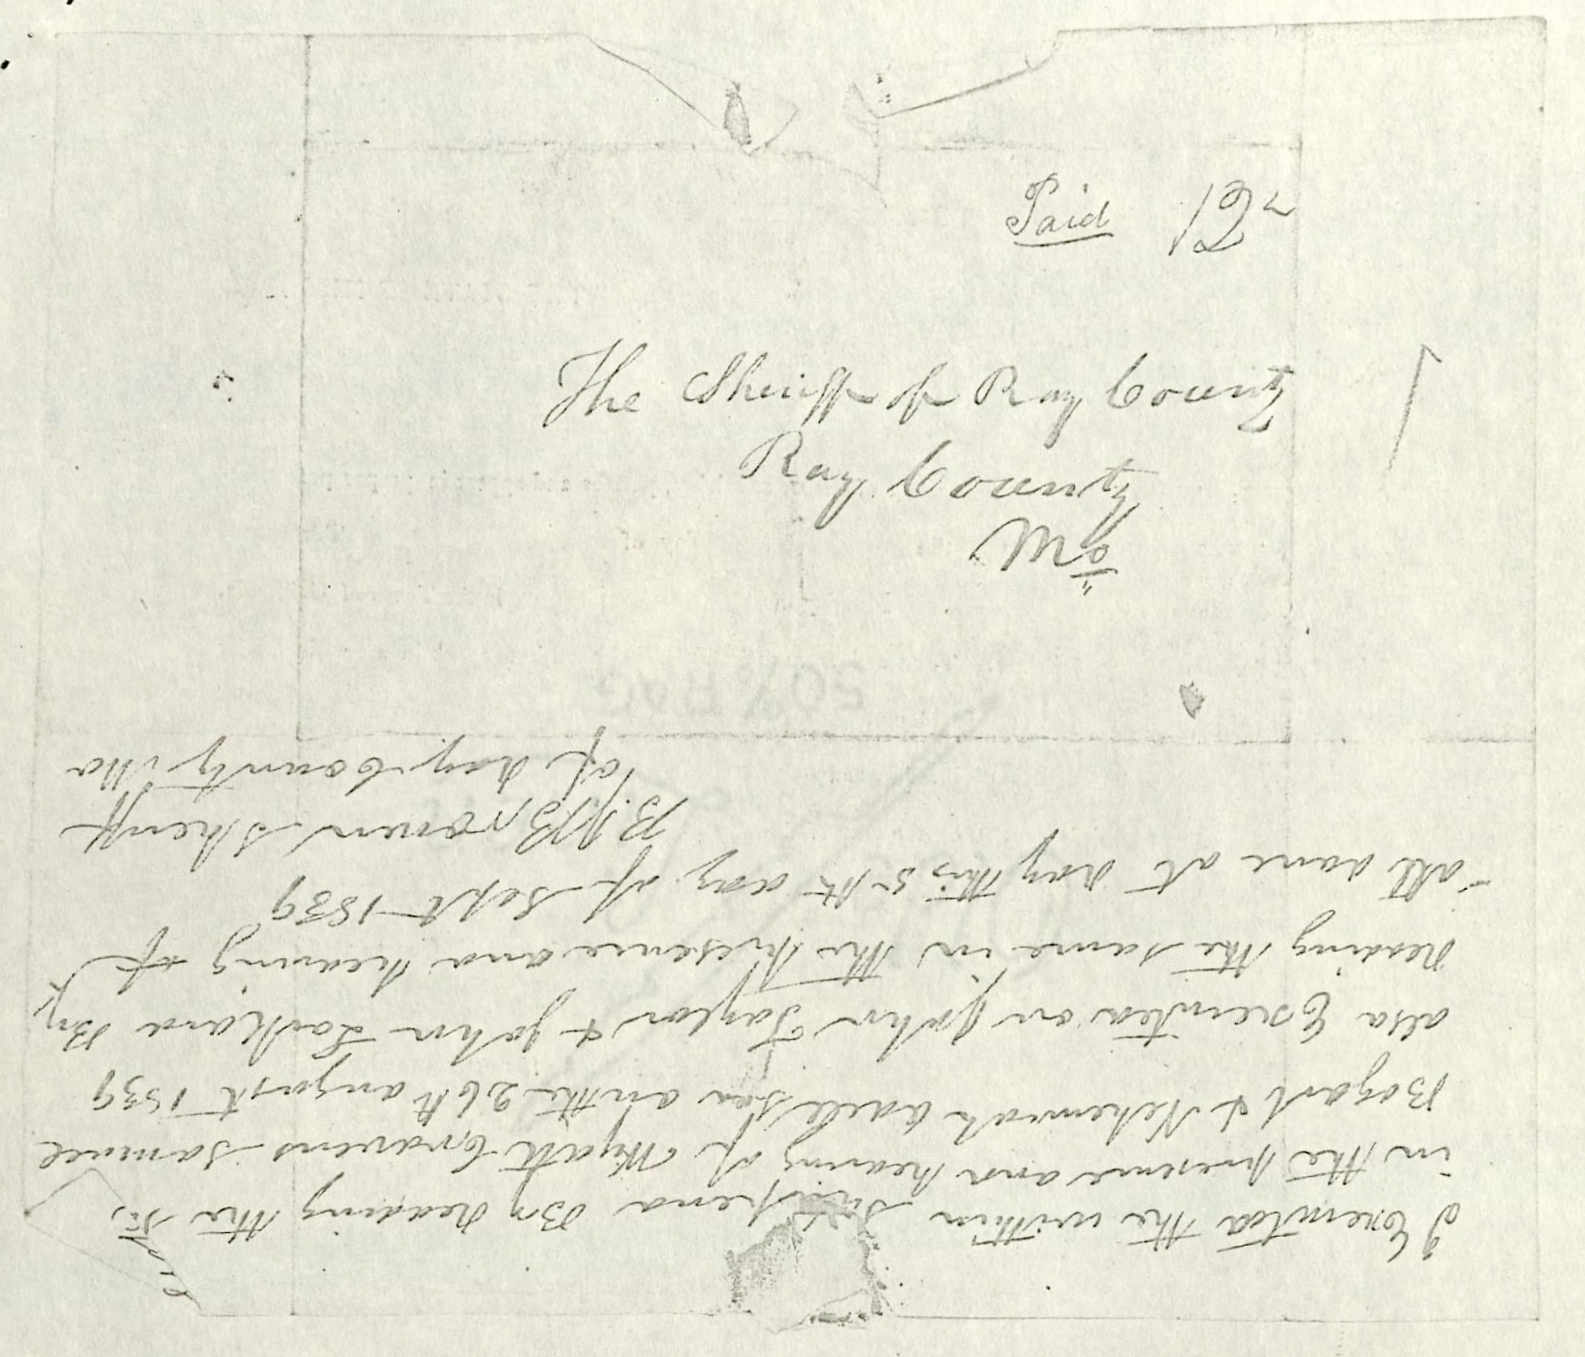 Paid 12
The Sheriff of Ray County
Ray County
Mo
I Executed the within Subpena By Reading the
in the presence and hearing of Wyatt Cravens Samuel
Bogart & Nehemiah on the 26th august 1839
also Executed on John Taylor & John Lockard By
Reading the same in the presence and hearing of
all done at Ray this 5th day of Sept 1839
Brown Sheriff
of Ray County Mo